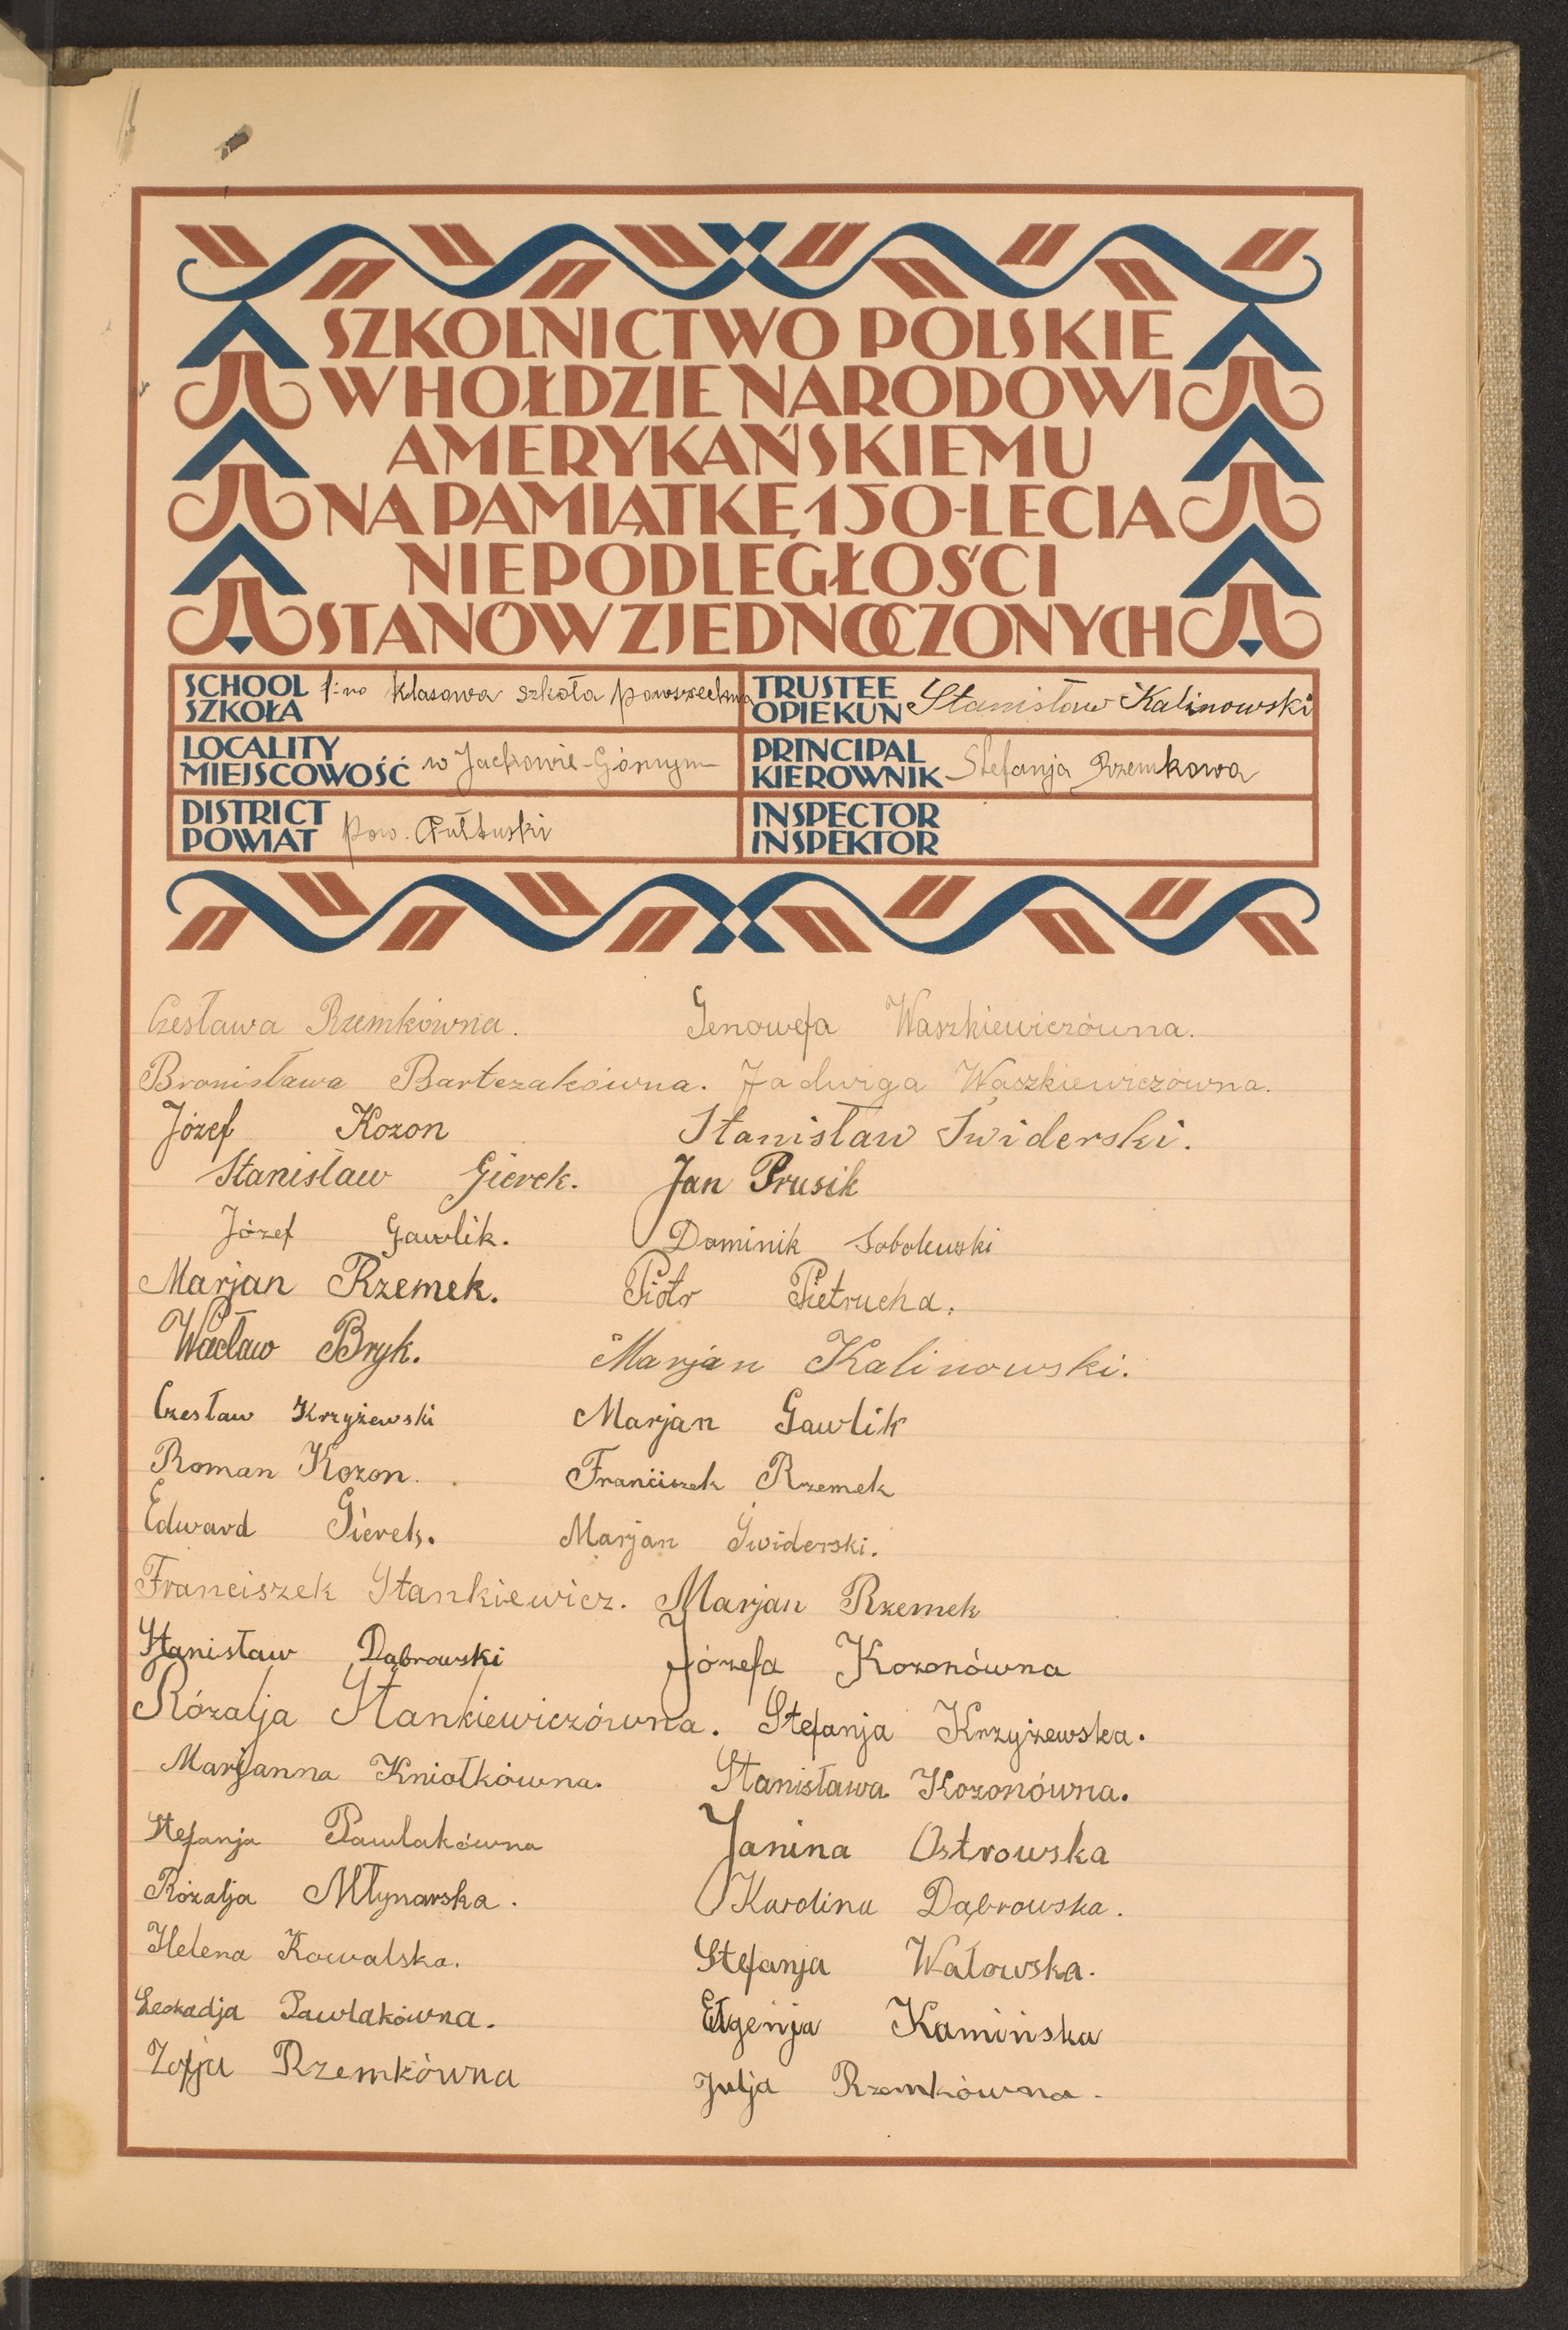 SZKOLNICTWO POLSKIE
W HOŁDZIE NARODOWI
AMERYKAŃSKIEMU
NA PAMIĄTKĘ 150-LECIA
NIEPODLEGŁOŚCI
STANÓW ZJEDNOCZONYCH
SCHOOL SZKOŁA 1-no klasowa szkoła powszechna
TRUSTEE OPIEKUN Stanisław Kalinowski
LOCALITY MIEJSCOWOŚĆ w Jackowie-Górnym
PRINCIPAL KIEROWNIK Stefanja Rzemkowa
DISTRICT POWIAT pow. Pułtuski
INSPECTOR INSPEKTOR
Czesława Rzemkówna. Genowefa Waszkiewiczówna.
Bronisława Bartczakówna. Jadwiga Waszkiewiczówna.
Józef Kozon Stanisław Świderski.
Stanisław Gierek. Jan Prusik
Józef Gawlik. Dominik Sobolewski
Marjan Rzemek. Piotr Pietrucha.
Wacław Bryk. Marjan Kalinowski.
Czesław Krzyżewski Marjan Gawlik
Roman Kozon. Franciszek Rzemek
Edward Gierek. Marjan Świderski.
Franciszek Stankiewicz. Marjan Rzemek
Stanisław Dąbrowski Józefa Kozonówna
Rózalja Stankiewiczówna. Stefanja Krzyżewska.
Marjanna Kniołkówna. Stanisława Kozonówna.
Stefanja Pawlakówna Janina Ostrowska
Rózalja Młynarska. Karolina Dąbrowska.
Helena Kowalska. Stefanja Watowska.
Leokadja Pawlakówna. Eugenja Kamińska
Zofja Rzemkówna Julja Rzemkówna.